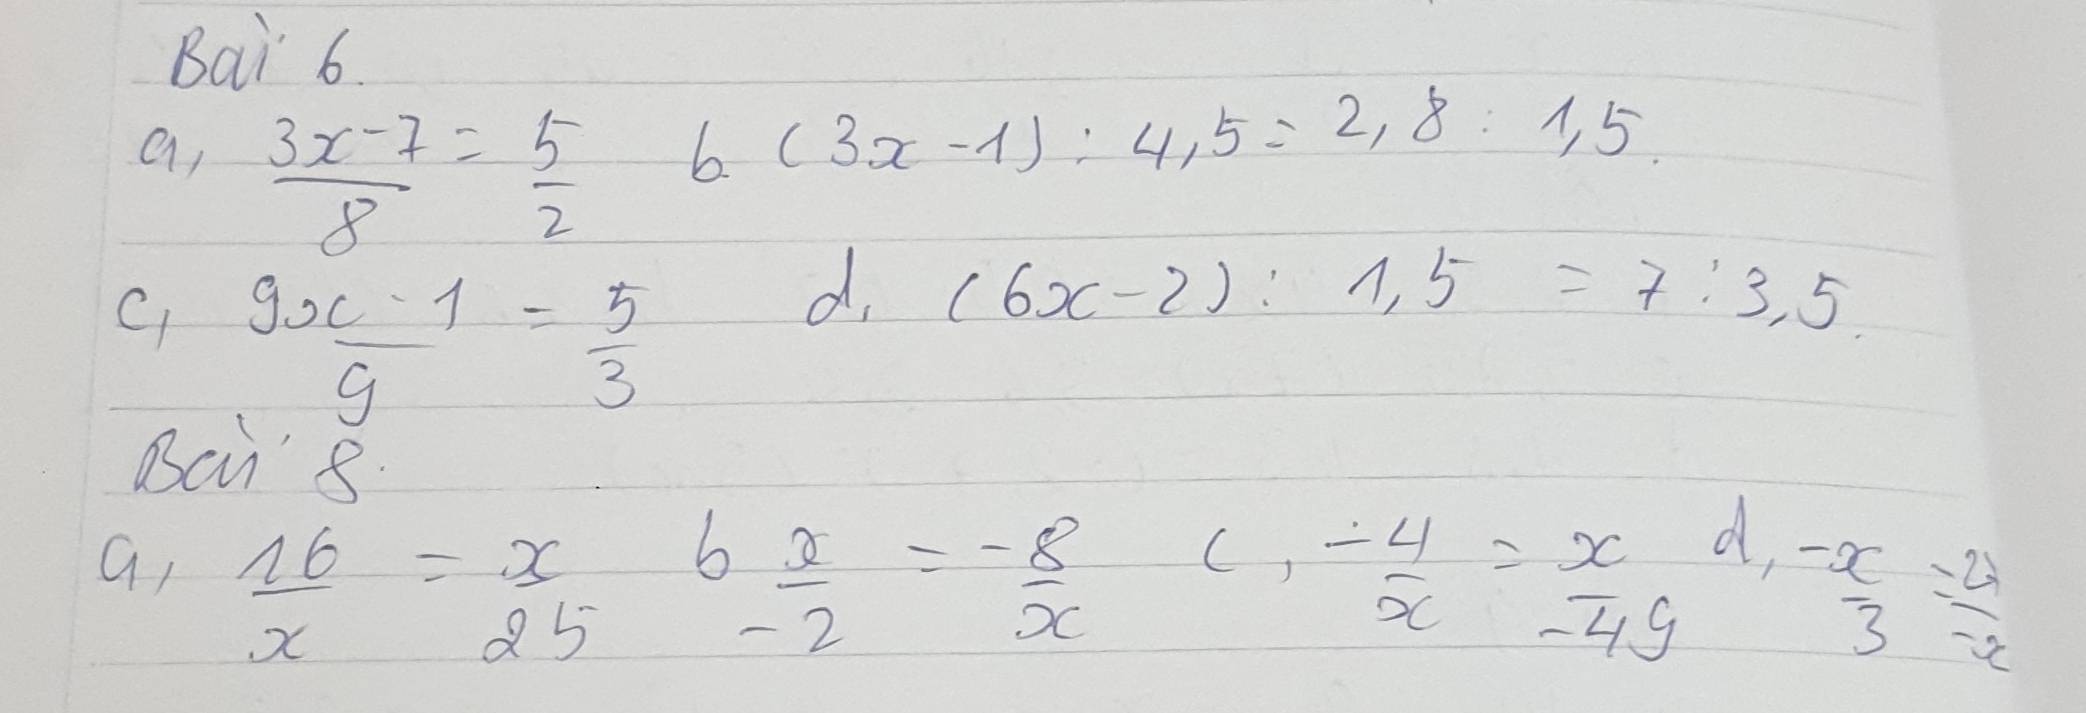 Bài 6.
a, 3x-7/8 = 5/2 b. (3x-1) : 4,5 = 2,8 : 1,5.
c, 9x-1/9 = 5/3 d. (6x-2) : 1,5 = 7 : 3,5.
Bài 8.
a, 16/x = x/25 b x/-2 = -8/x c, -4/x = x/-49 d, -x/3